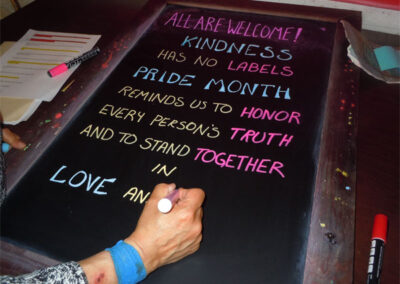 ALL ARE WELCOME!
KINDNESS
HAS NO LABELS
PRIDE MONTH
REMINDS US TO HONOR
EVERY PERSON'S TRUTH
AND TO STAND TOGETHER
IN
LOVE AN